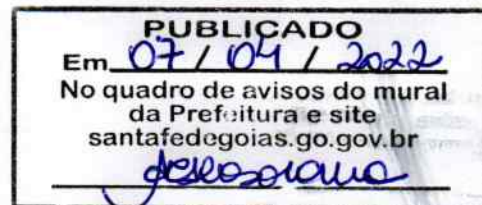 PUBLICADO
Em 07 / 04 / 2022
No quadro de avisos do mural
da Prefeitura e site
santafedegoias.go.gov.br